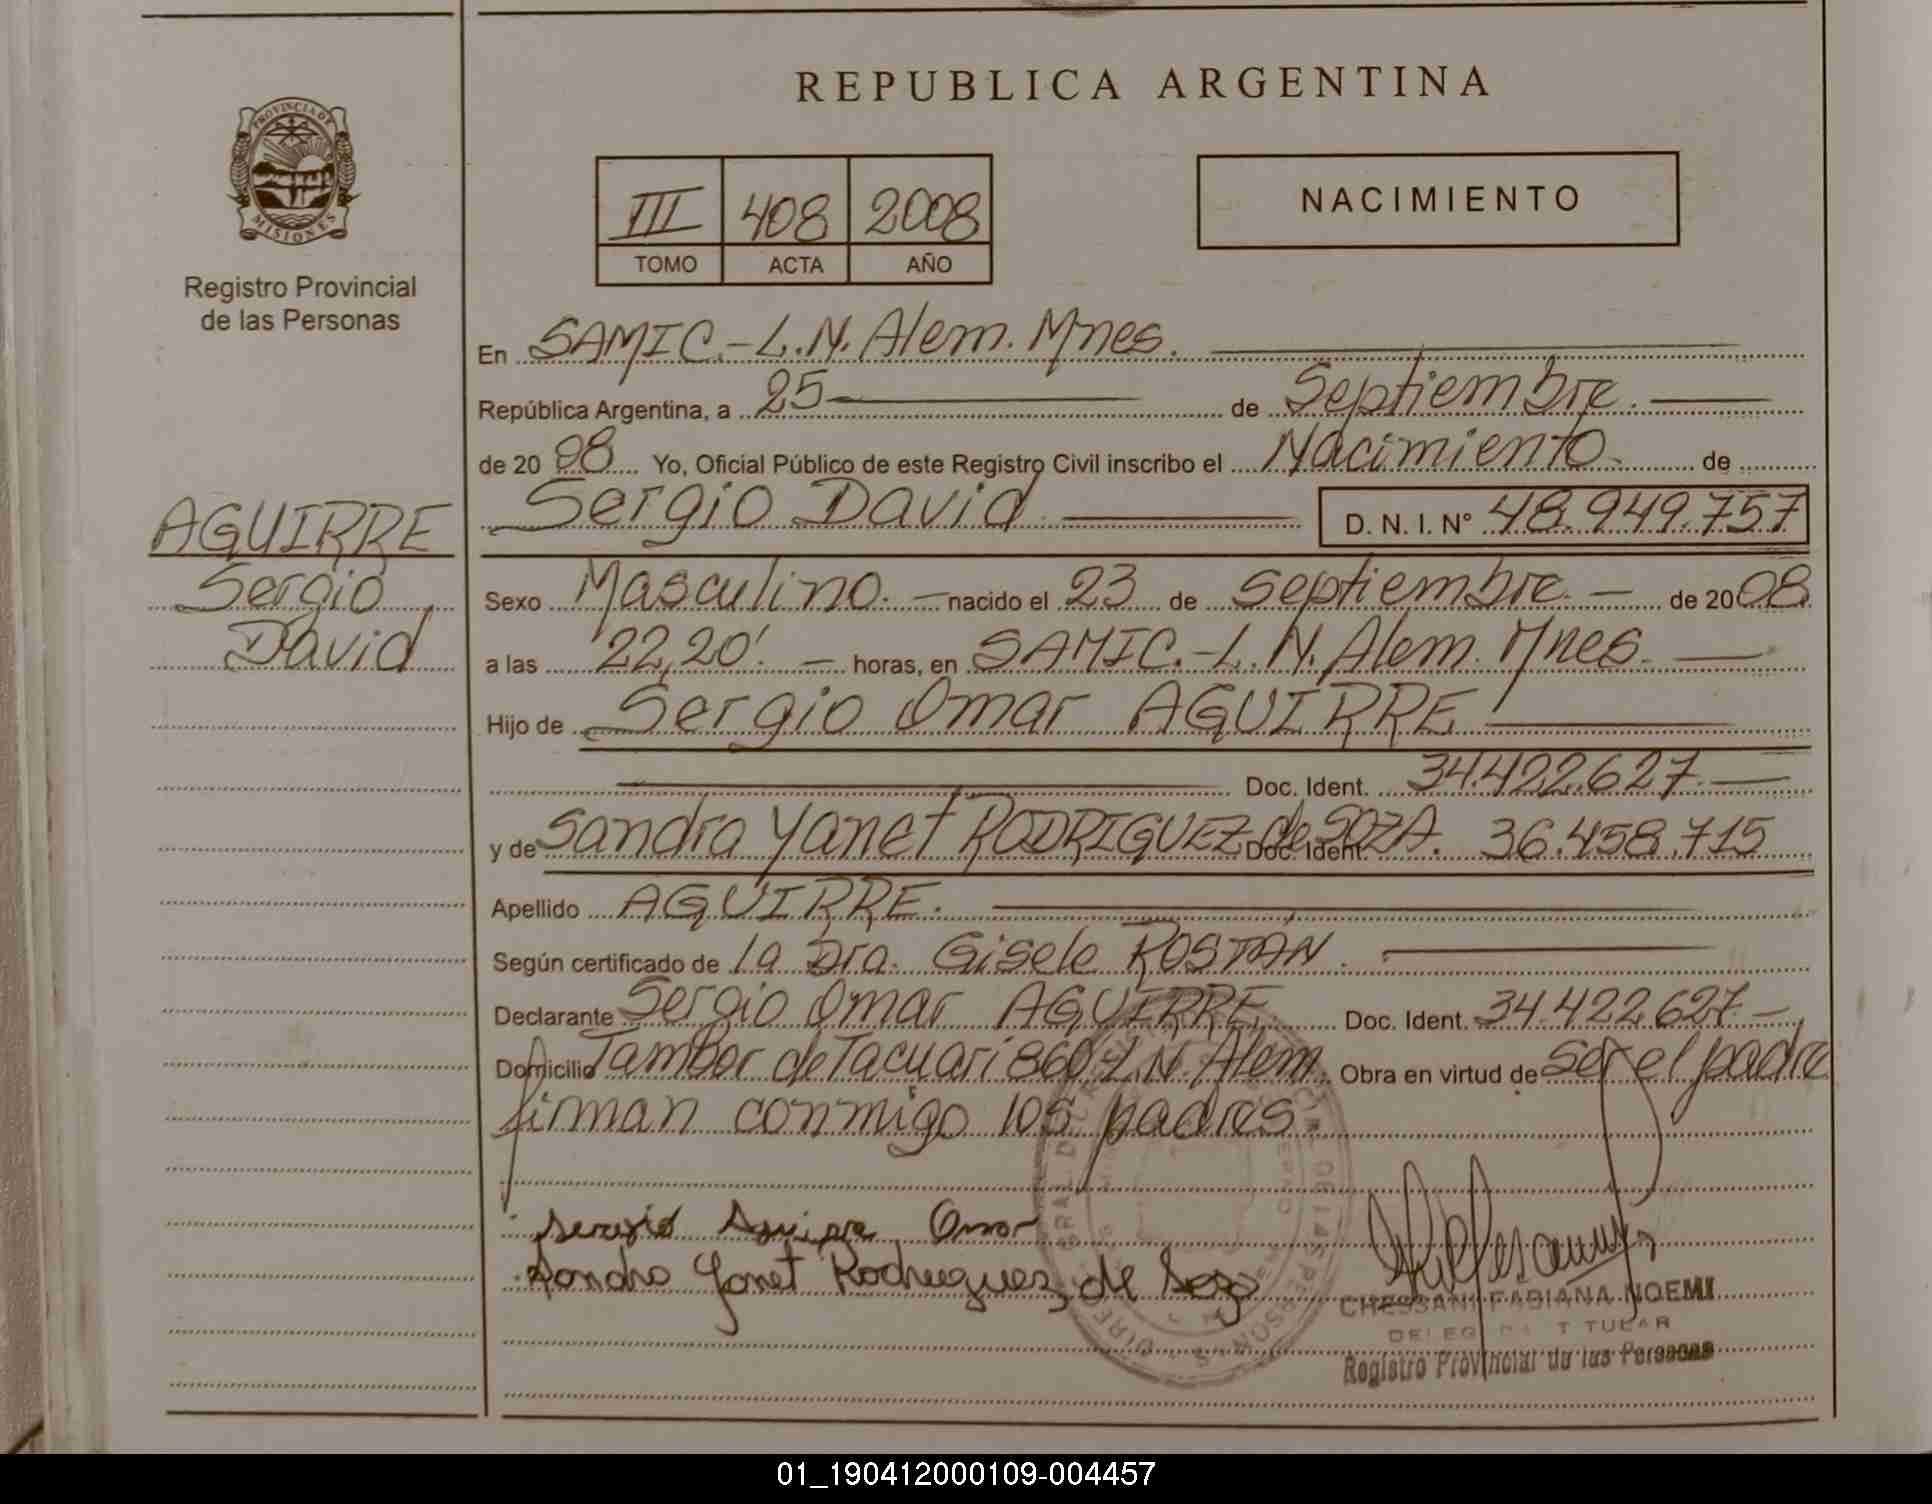 REPUBLICA ARGENTINA
PROVINCIA DE MISIONES
Registro Provincial
de las Personas
III 408 2008
TOMO ACTA AÑO
NACIMIENTO
En SAMIC.-L.N. Alem. Mnes.
República Argentina, a 25 de Septiembre.
de 20 08 Yo, Oficial Público de este Registro Civil inscribo el Nacimiento. de
Sergio David D. N. I. N° 48.949.757
AGUIRRE
Sergio
David
Sexo Masculino. nacido el 23 de septiembre. de 20 08.
a las 22,20'. horas, en SAMIC.-L.N. Alem. Mnes.
Hijo de Sergio Omar AGUIRRE
Doc. Ident. 34.422.627.
y de Sandra Yanet RODRIGUEZ de SOZA. Doc. Ident. 36.458.715
Apellido AGUIRRE.
Según certificado de la Dra. Gisele ROSTÁN.
Declarante Sergio Omar AGUIRRE. Doc. Ident. 34.422.627
Domicilio Tambor de Tacuarí 860 L.N. Alem. Obra en virtud de ser el padre
firman conmigo los padres.
Sergio Aguirre Omar
Sandra Yanet Rodriguez de Soza
CHESSANI FABIANA NOEMI
DELEGADA TITULAR
Registro Provincial de las Personas
01_190412000109-004457